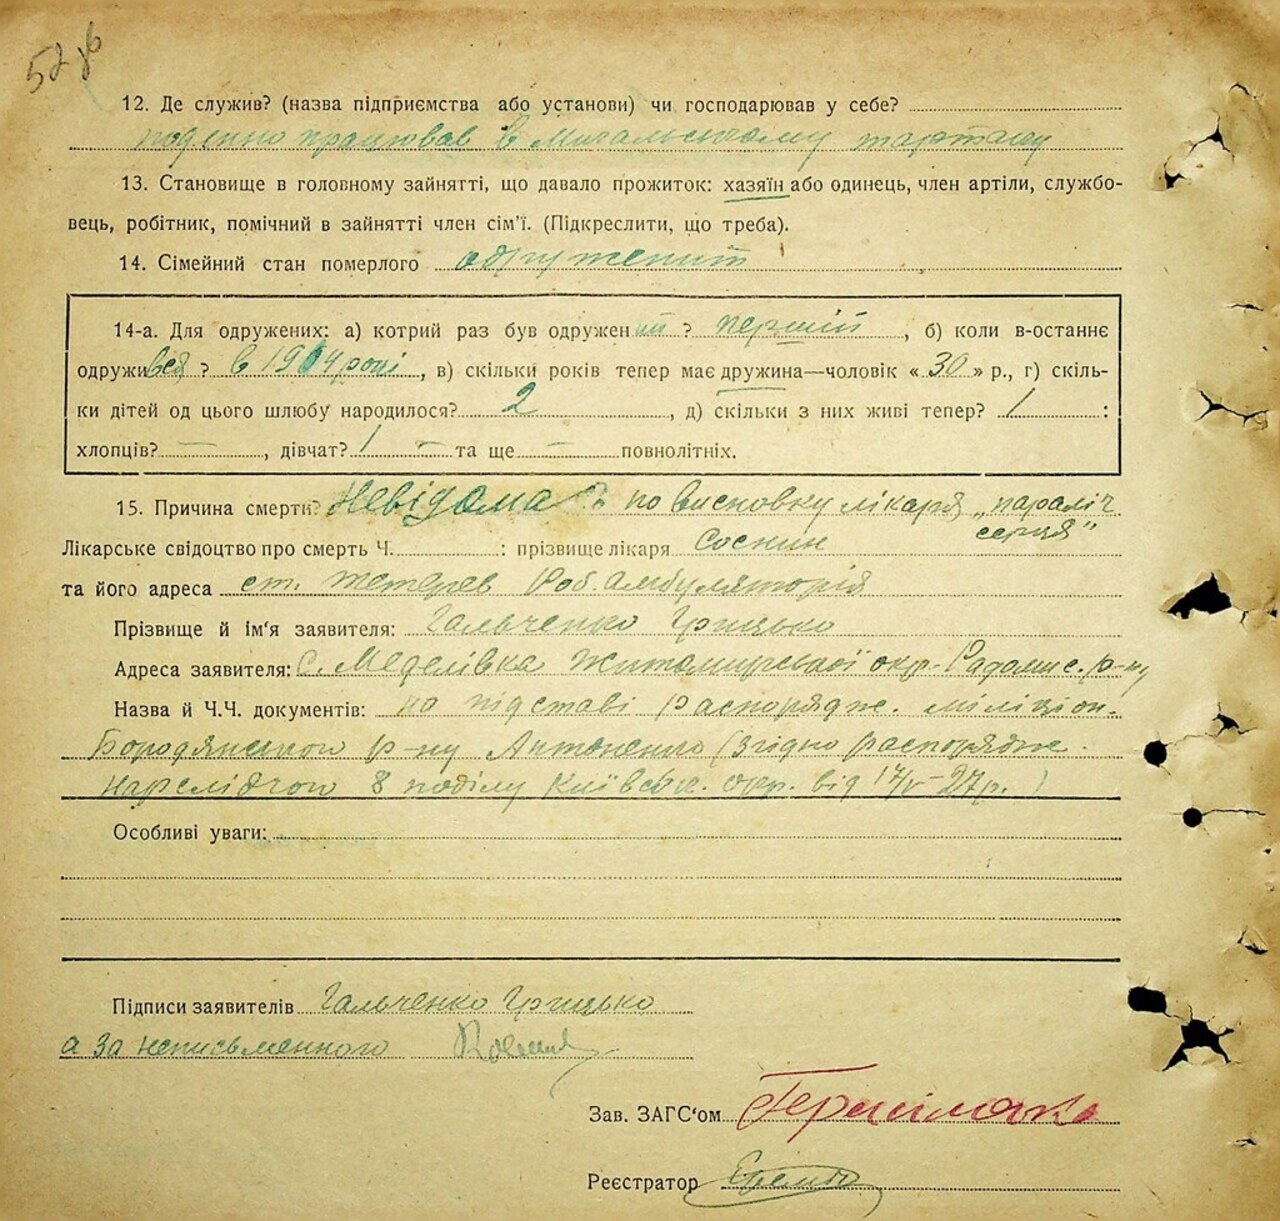 12. Де служив? (назва підприємства або установи) чи господарював у себе?
поденно працював в Мигальському тартаку
13. Становище в головному зайнятті, що давало прожиток: хазяїн або одинець, член артіли, службо-
вець, робітник, помічний в зайнятті член сім’ї. (Підкреслити, що треба).
14. Сімейний стан померлого одружений
14-а. Для одружених: а) котрий раз був одружений ? перший, б) коли в-останнє
одружився ? в 1904 році, в) скільки років тепер має дружина—чоловік « 30 » р., г) скіль-
ки дітей од цього шлюбу народилося? 2, д) скільки з них живі тепер? 1 :
хлопців? —, дівчат? 1 — та ще — повнолітніх.
15. Причина смерти? Невідома по висновку лікаря „параліч
серця“
Лікарське свідоцтво про смерть Ч. : прізвище лікаря Соскин
та його адреса ст. Тетерев Роб. амбуляторія
Прізвище й ім‘я заявителя: Гальченко Грицько
Адреса заявителя: С. Меделівка Житомирської окр. Радомис. р-ну
Назва й Ч.Ч. документів: на підставі распорядж. міліціон.
Бородянського р-ну Антоненко (згідно распорядж.
нарслідчого 8 поділу Київськ. окр. від 17/V-27р.)
Особливі уваги:
Підписи заявителів Гальченко Грицько
а за неписьменного
Зав. ЗАГС‘ом
Реєстратор